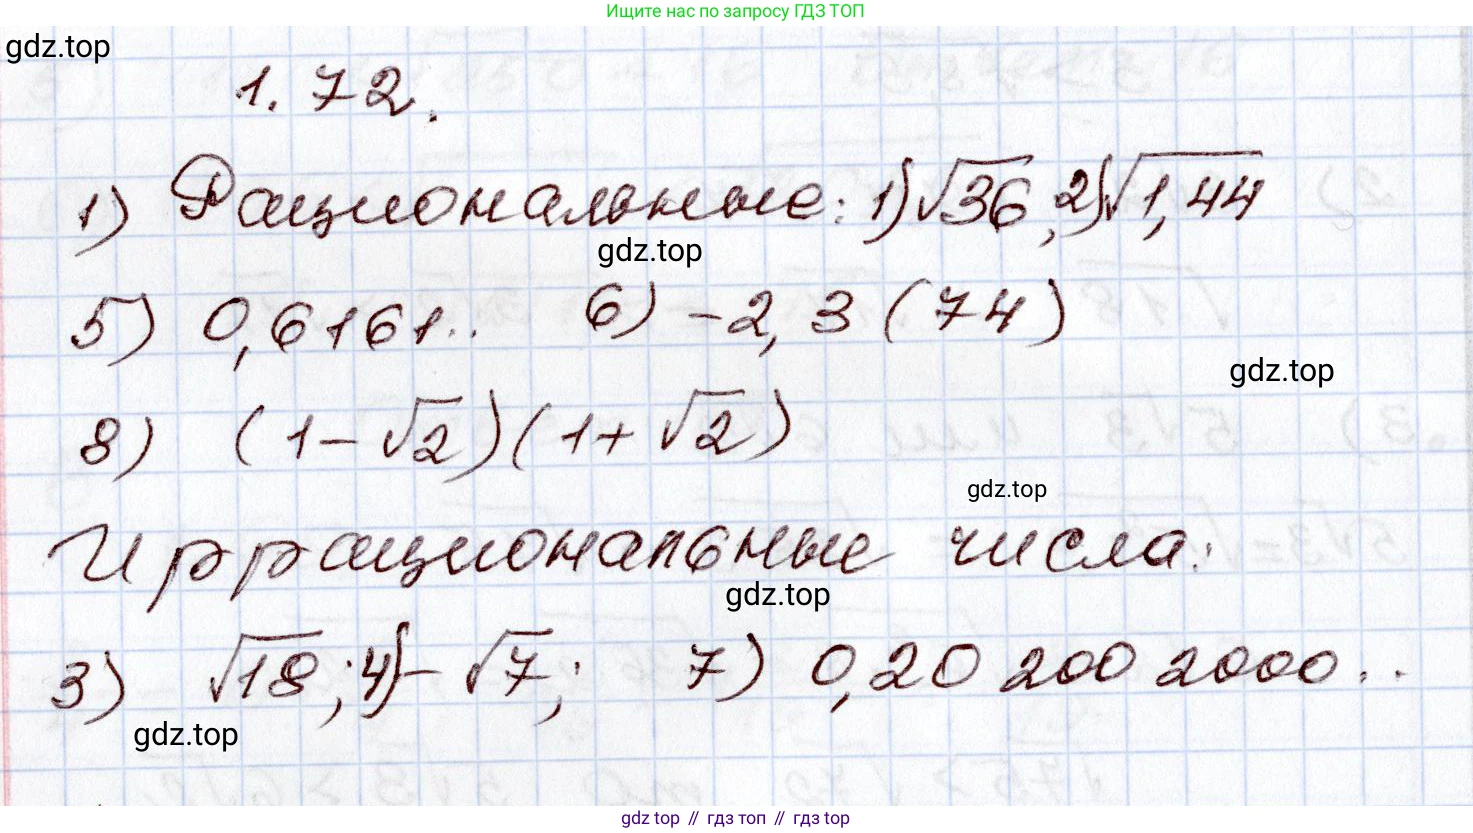 Ищите нас по запросу ГДЗ ТОП
gdz.top
1.72.
1) Рациональные: 1) √36, 2) √1,44
gdz.top
5) 0,6161.. 6) -2,3(74)
gdz.top
8) (1-√2)(1+√2)
gdz.top
Иррациональные числа:
gdz.top
3) √18; 4) -√7; 7) 0,20 200 2000...
gdz.top
gdz top // гдз топ // гдз top